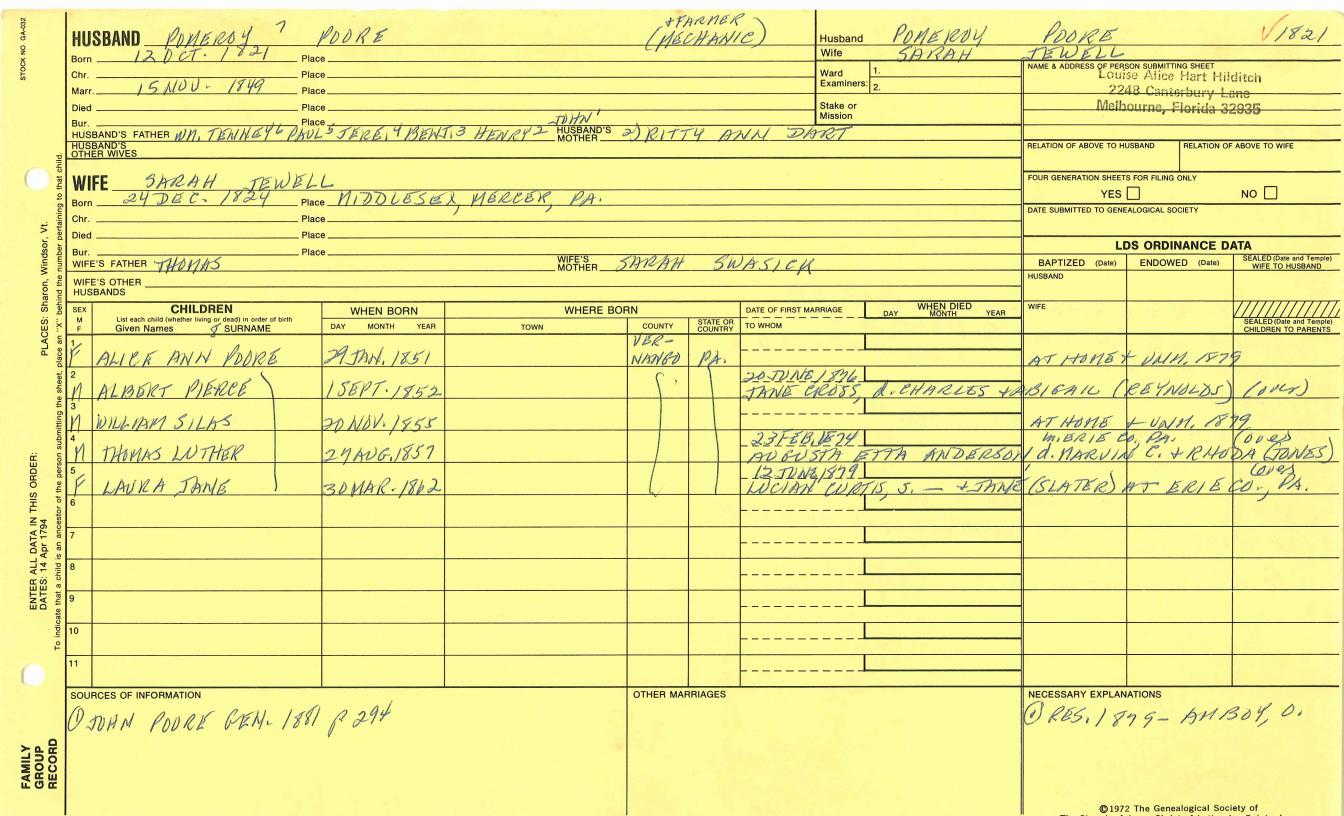 STOCK NO. GA-032
HUSBAND POMEROY 7 POORE + FARMER (MECHANIC)
Born 12 OCT. 1821 Place
Chr. Place
Marr. 15 NOV. 1849 Place
Died Place
Bur. Place
HUSBAND'S FATHER WM. TENNEY 6 PAUL 5 JERE. 4 BENJ. 3 HENRY 2 JOHN 1 HUSBAND'S MOTHER 2) RITTY ANN DART
HUSBAND'S OTHER WIVES
Husband POMEROY POORE √ 1821
Wife SARAH JEWELL
Ward Examiners: 1.
2.
Stake or Mission
NAME & ADDRESS OF PERSON SUBMITTING SHEET
Louise Alice Hart Hilditch
2248 Canterbury Lane
Melbourne, Florida 32935
RELATION OF ABOVE TO HUSBAND RELATION OF ABOVE TO WIFE
FOUR GENERATION SHEETS FOR FILING ONLY
YES NO
DATE SUBMITTED TO GENEALOGICAL SOCIETY
WIFE SARAH JEWELL
Born 24 DEC. 1824 Place MIDDLESEX, MERCER, PA.
Chr. Place
Died Place
Bur. Place
WIFE'S FATHER THOMAS WIFE'S MOTHER SARAH SWASICK
WIFE'S OTHER HUSBANDS
LDS ORDINANCE DATA
BAPTIZED (Date) ENDOWED (Date) SEALED (Date and Temple) WIFE TO HUSBAND
HUSBAND
WIFE
SEALED (Date and Temple) CHILDREN TO PARENTS
SEX M F
CHILDREN
List each child (whether living or dead) in order of birth
Given Names SURNAME
WHEN BORN
DAY MONTH YEAR
WHERE BORN
TOWN COUNTY STATE OR COUNTRY
DATE OF FIRST MARRIAGE
TO WHOM
WHEN DIED
DAY MONTH YEAR
1 F ALICE ANN POORE 29 JAN. 1851 VER-NANGO PA. AT HOME + UNM. 1879
2 M ALBERT PIERCE 1 SEPT. 1852 20 JUNE, 1876
JANE CROSS, d. CHARLES + ABIGAIL (REYNOLDS) (over)
3 M WILLIAM SILAS 20 NOV. 1855 AT HOME + UNM. 1879
4 M THOMAS LUTHER 27 AUG. 1857 23 FEB. 1874 m. ERIE CO, PA. (over)
AUGUSTA ETTA ANDERSON d. MARVIN C. + RHODA (JONES)
5 F LAURA JANE 30 MAR. 1862 12 JUNE, 1879 (over)
LUCIAN CURTIS, S. — + JANE (SLATER) AT ERIE CO., PA.
6
7
8
9
10
11
SOURCES OF INFORMATION
① JOHN POORE GEN. 1881 p 294
OTHER MARRIAGES
NECESSARY EXPLANATIONS
① RES. 1879 - AMBOY, O.
©1972 The Genealogical Society of
PLACES: Sharon, Windsor, Vt.
ENTER ALL DATA IN THIS ORDER:
DATES: 14 Apr 1794
To indicate that a child is an ancestor of the person submitting the sheet, place an "X" behind the number pertaining to that child.
FAMILY GROUP RECORD